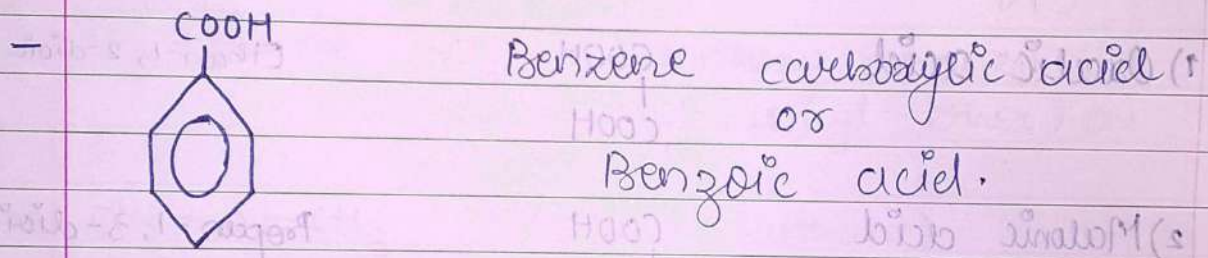 – COOH
Benzene carboxylic acid
or
Benzoic acid.